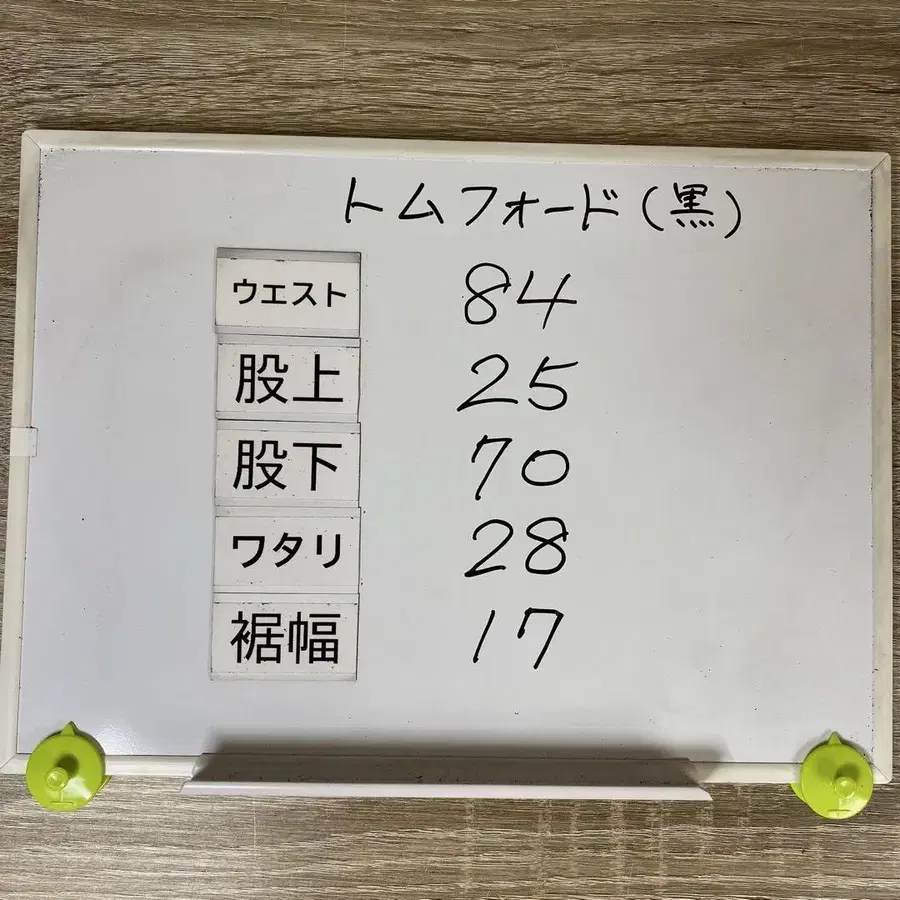 トムフォード(黒)
ウエスト 84
股上 25
股下 70
ワタリ 28
裾幅 17